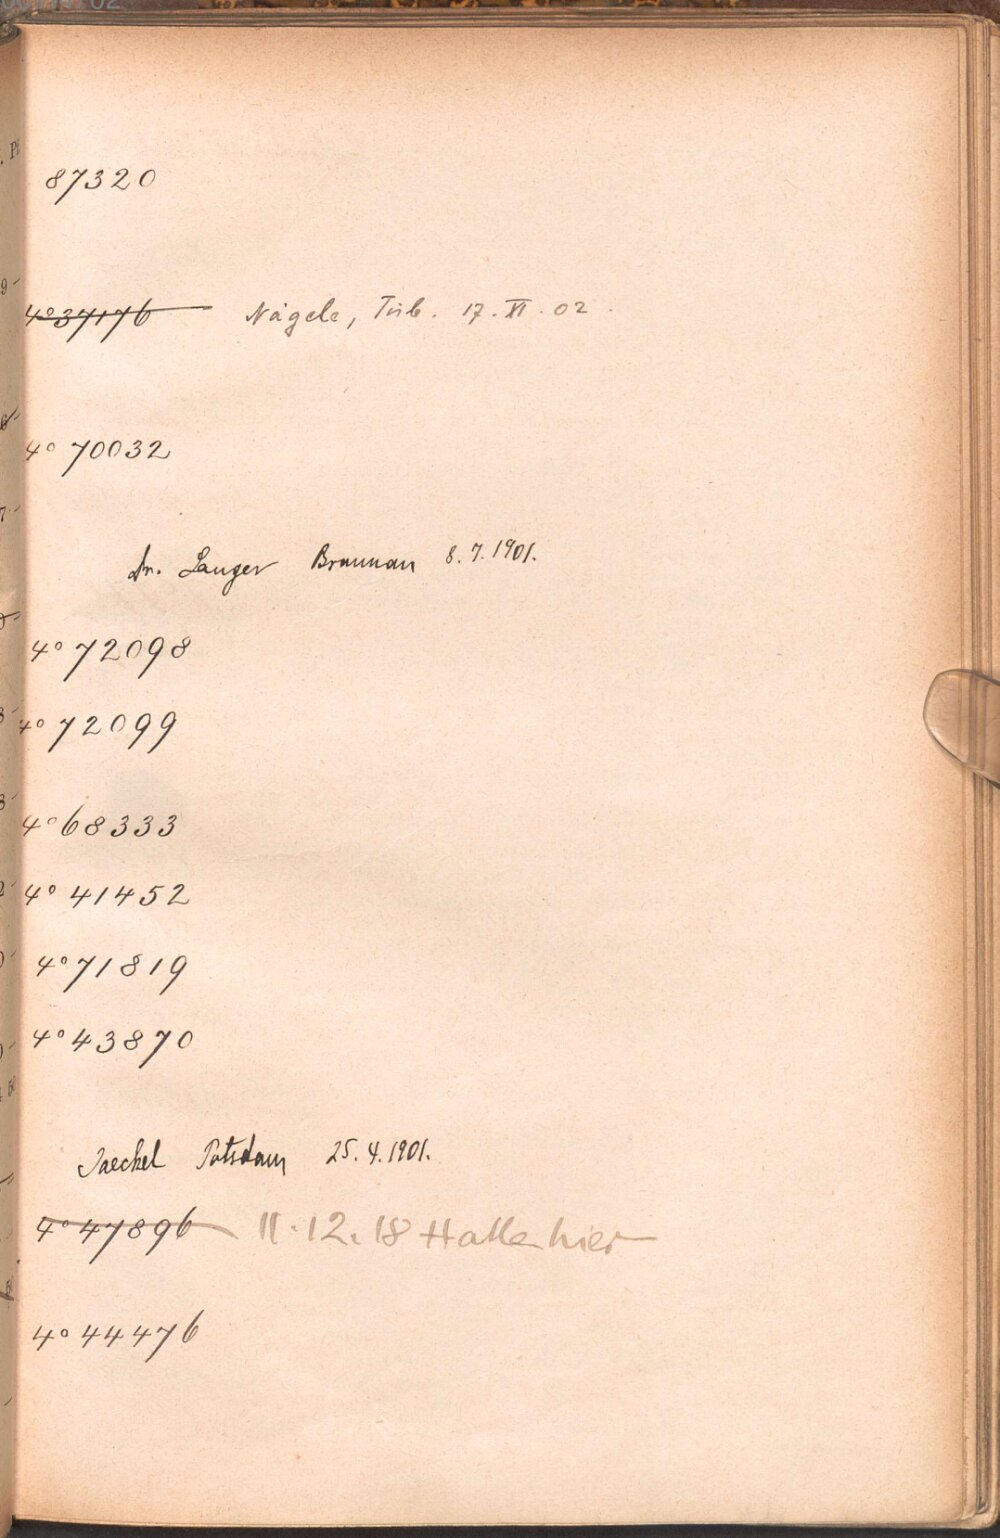 87320
4°37176 Nägele, Tüb. 17.XI.02.
4° 70032
Dr. Langer Braunau 8.7.1901.
4° 72098
4° 72099
4° 68333
4° 41452
4° 71819
4° 43870
Jaeckel Potsdam 25.4.1901.
4° 47896 11.12.18 Halle hier
4° 44476